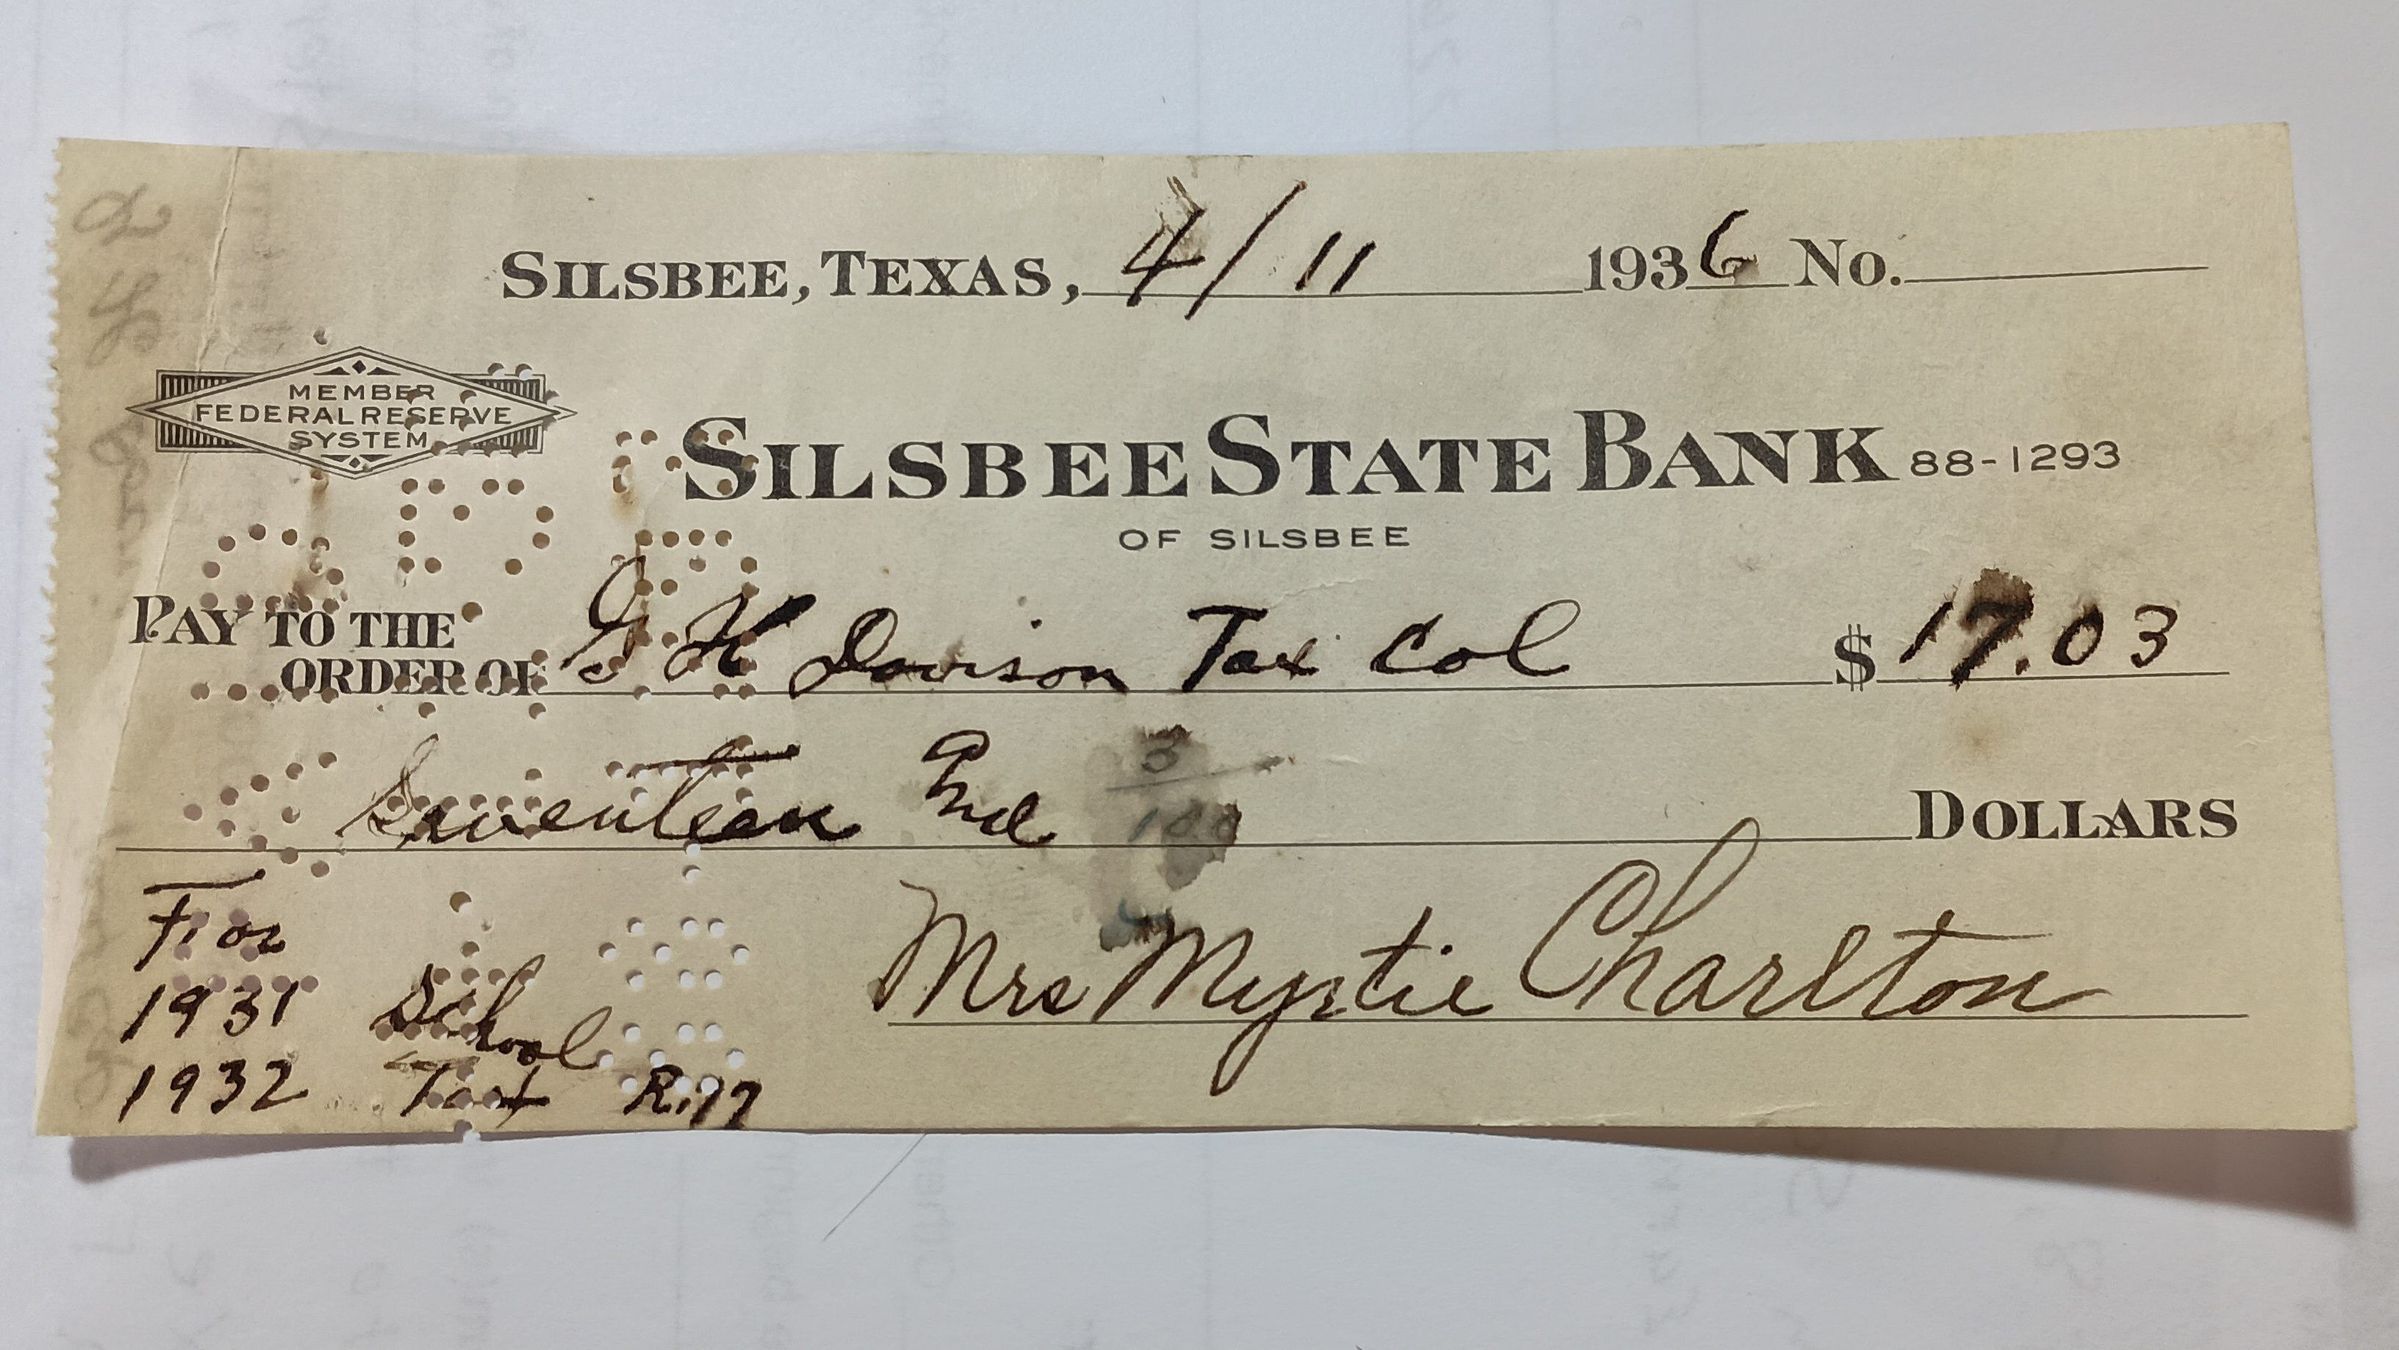 SILSBEE, TEXAS, 4/11 1936 No.
MEMBER
FEDERAL RESERVE
SYSTEM
SILSBEE STATE BANK 88-1293
OF SILSBEE
PAY TO THE
ORDER OF G H Davison Tax Col $17.03
Seventeen And 3/100 DOLLARS
For
1931 School
1932 Tax
Mrs Myrtie Charlton